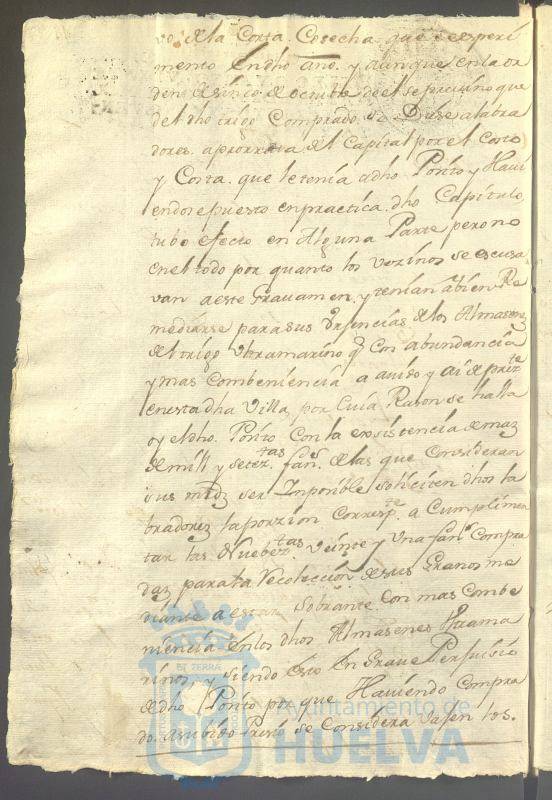 vo. de la Corta Cosecha que se esperi
mento en dho año. y aunque en la or
den de sinco de octubre de el se previno que
del dho trigo Comprado se Diese a labra
dores. aprorrata del Capital por el Costo
y Costa. que le tenia a dho Posito y Havi
endose puesto en practica. dho Capitulo,
tubo efecto en Alguna Parte pero no
en el todo por quanto los vezinos se escusa
van a este Gravamen, y tenian a bien Re
mediarse para sus Urjencias de los Almasenes
del trigo Ultramarino q. Con abundancia
y mas Combeniencia a avido y ai de prizte
en esta dha Villa, por Cuia Rason se halla
oy el dho. Posito Con la existencia de mas
de mill y setez.tas fans. de las que Consideran
sus mdz ser Imposible soliciten dhos la
bradores la porzion Corresp.te a Cumplimen
tar las Nuebez.tas veinte y una fans. Compra
das para la Recoleccion de sus Granos me
diante a estar Sobrante Con mas Combe
niencia en los dhos Almasenes Ultrama
rinos, y siendo esto en Grave Perjuicio
de dho Posito por que Haviendo Compra
do. a subido Presio se Considera vajen los.
ET TERRÆ
Ayuntamiento de
HUELVA